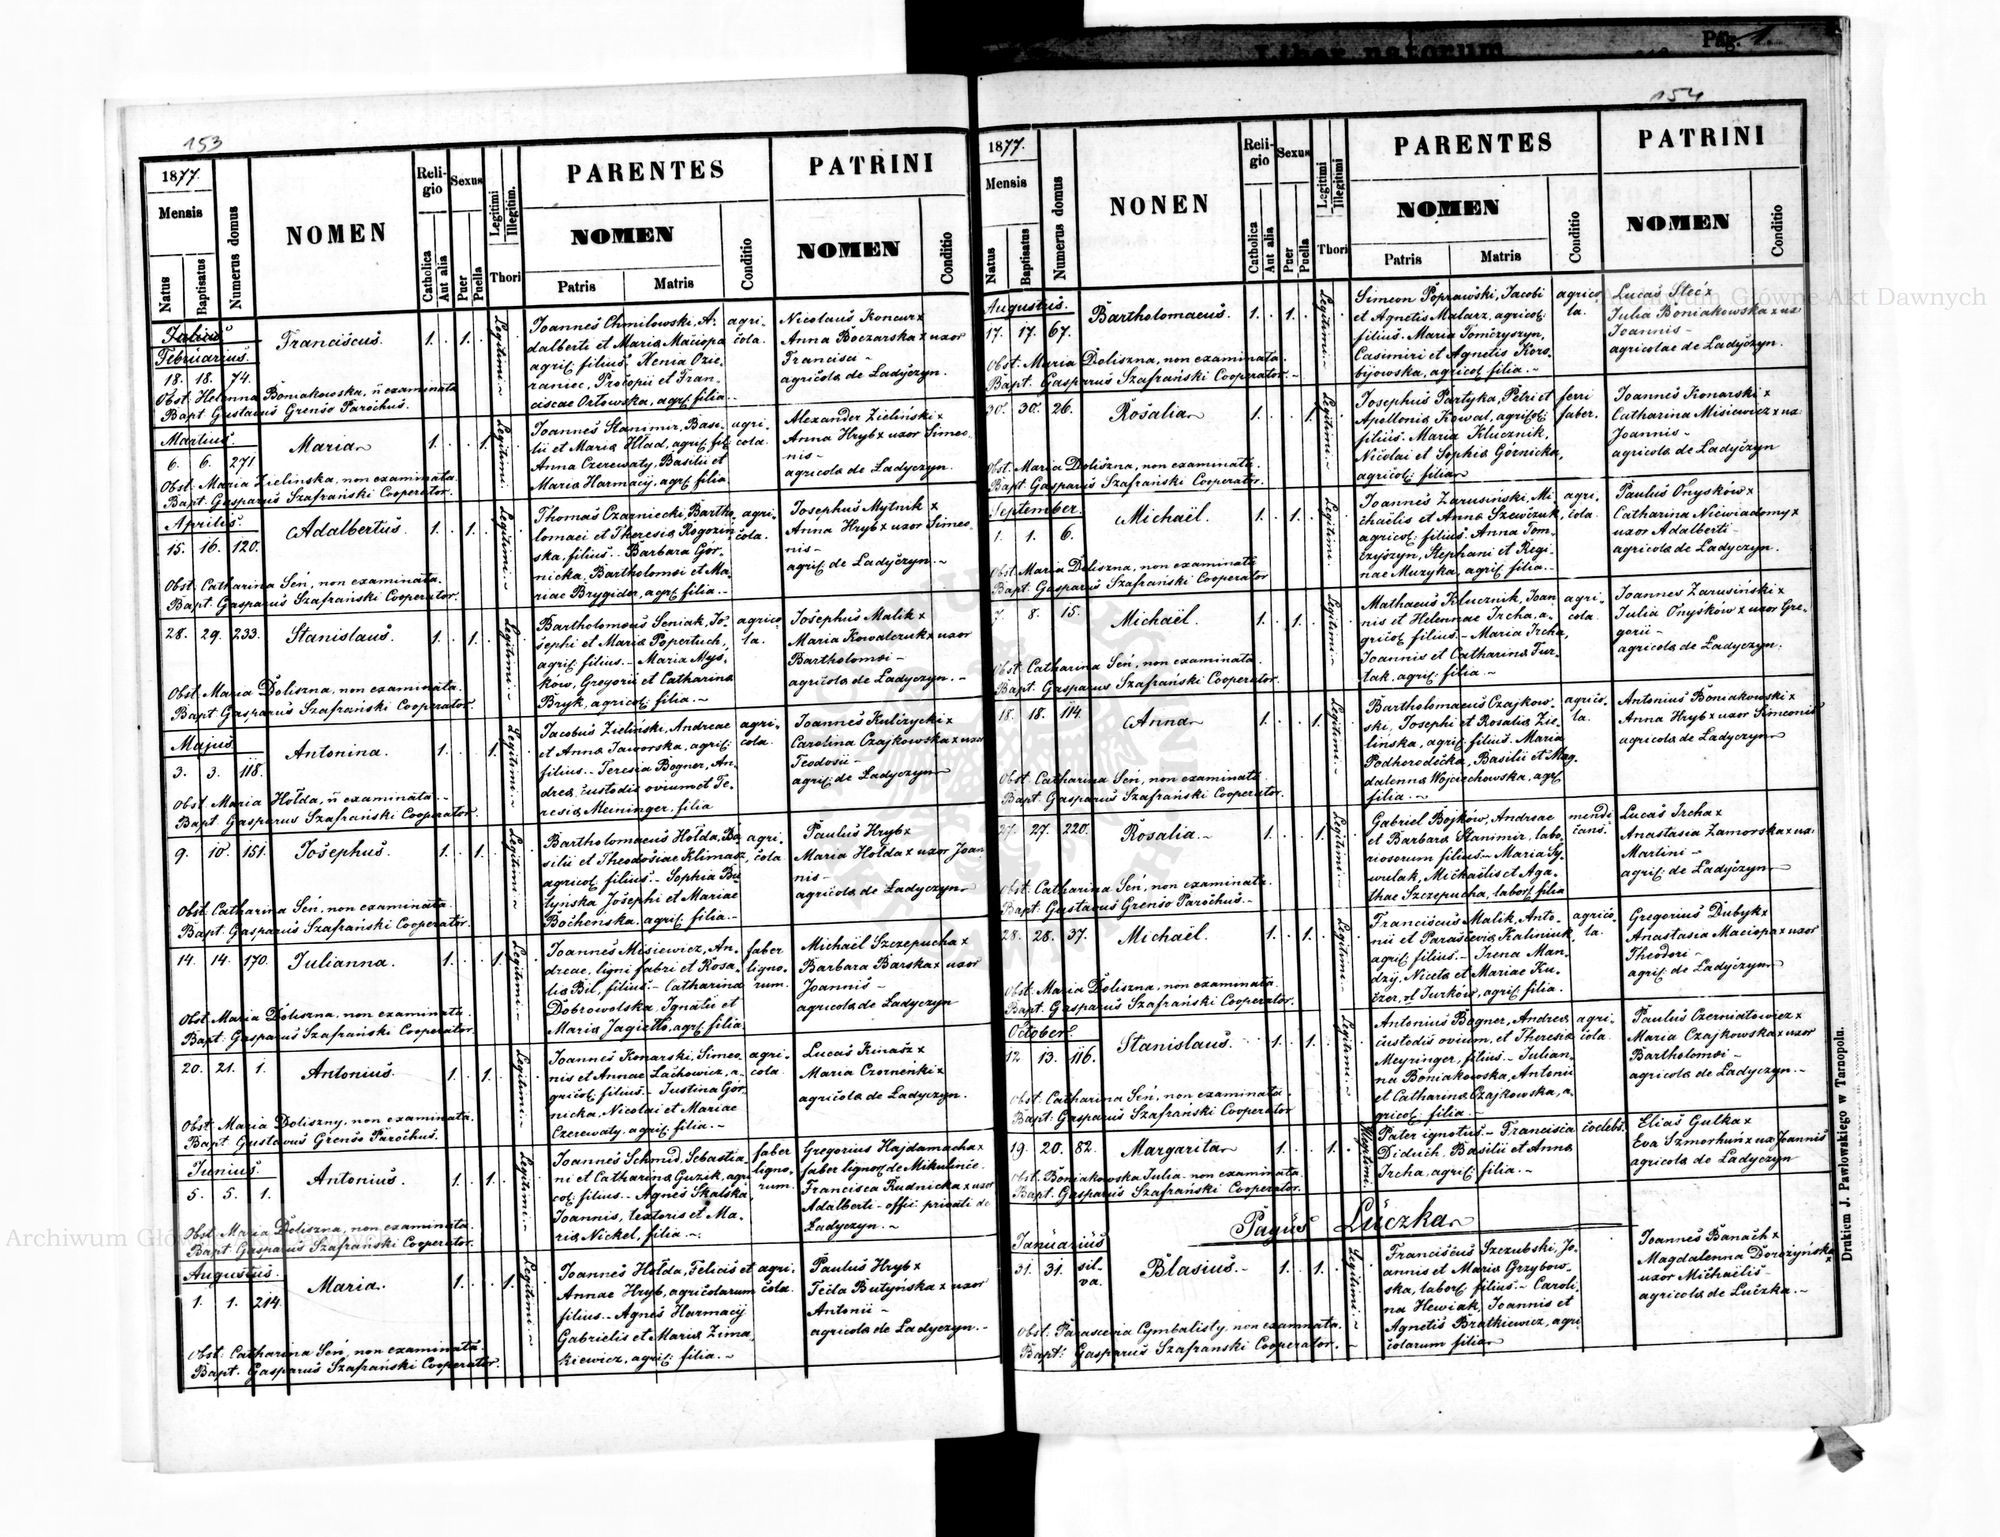 Liber natorum
Pag. 1.
153
1877.
Mensis
Natus
Baptisatus
Numerus domus
NOMEN
Religio
Catholica
Aut alia
Sexus
Puer
Puella
Legitimi
Illegitim.
Thori
PARENTES
NOMEN
Patris
Matris
Conditio
PATRINI
NOMEN
Conditio
Februarius.
18. 18. 74.
Franciscus.
1. 1.
Legitimi
Joannes Chmilowski, A-
dalberti et Mariæ Maciopa
agric. filius. Xenia Ozie-
raniec, Procopii et Fran-
ciscae Orłowska, agr. filia.
agri-
cola.
Nicolaus Koncur x
Anna Boczarska x uxor
Francisci -
agricolæ de Ladyczyn.
Obst. Helenna Boniakowska, ñ examinata
Bapt. Gustavus Grenso Parochus.
Martius.
6. 6. 271
Maria
1. 1.
Legitimi
Joannes Stanimir, Basi-
lii et Mariæ Hład, agric. fil.
Anna Czerewaty, Basilii et
Mariæ Harmacij, agr. filia
agri-
cola.
Alexander Zieliński x
Anna Hryb x uxor Simeo-
nis -
agricolæ de Ladyczyn.
Obst. Maria Zielinska, non examinata.
Bapt. Gasparus Szafrański Cooperator.
Aprilis.
15. 16. 120.
Adalbertus.
1. 1.
Legitimi.
Thomas Czarniecki, Bartho-
lomaei et Theresiæ Rogozin-
ska, filius. - Barbara Gór-
nicka, Bartholomæi et Ma-
riae Brygider, agr. filia. -
agri-
cola.
Josephus Mytnik x
Anna Hryb x uxor Simeo-
nis -
agric. de Ladyczyn. -
Obst. Catharina Sen, non examinata.
Bapt. Gasparus Szafrański Cooperator.
28. 29. 233.
Stanislaus.
1. 1.
Legitimi.
Bartholomæus Seniak, Jo-
sephi et Mariæ Popertuch,
agric. filius. - Maria Mys-
ków, Gregorii et Catharinæ
Bryk, agricol. filia. -
agrico-
la.
Josephus Malik x
Maria Kowalczuk x uxor
Bartholomæi -
agricolæ de Ladyczyn. -
Obst. Maria Doliszna, non examinata.
Bapt. Gasparus Szafrański Cooperator.
Majus
3. 3. 118.
Antonina.
1. 1.
Legitimi.
Jacobus Zieliński, Andreae
et Annæ Jaworska, agric.
filius. - Teresia Bogner, An-
dreæ, custodis ovium et Te-
resiæ Meininger. filia
agri-
cola.
Joannes Kulczycki x
Carolina Czajkowska x uxor
Teodosii -
agric. de Ladyczyn
Obst. Maria Hołda, ñ examinata. -
Bapt. Gasparus Szafrański Cooperator.
9. 10. 151.
Josephus.
1. 1.
Legitimi
Bartholomaeus Hołda, Ba-
silii et Theodosiae Klimasz,
agricol. filius. - Sophia Bu-
tynska Josephi et Mariae
Bochenska. agric. filia. -
agri-
cola.
Paulus Hryb x
Maria Hołda x uxor Joan-
nis -
agricolæ de Ladyczyn
Obst. Catharina Sen, non examinata.
Bapt. Gasparus Szafrański Cooperator.
14. 14. 170.
Julianna.
1. 1.
Legitimi.
Joannes Misiewicz, An-
dreae, ligni fabri et Rosa-
liæ Bil, filius. - Catharina
Dobrowolska, Ignatii et
Mariæ Jagiełło, agr. filia
faber
ligno-
rum.
Michaël Szczepucha x
Barbara Barska x uxor
Joannis -
agricolæ de Ladyczyn
Obst. Maria Doliszna, non examinata.
Bapt. Gasparus Szafrański Cooperator.
20. 21. 1.
Antonius.
1. 1.
Legitimi.
Joannes Konarski, Simeo-
nis et Annae Lachowicz, a-
gricol. filius. - Justina Gór-
nicka, Nicolai et Mariae
Czerewaty. agric. filia. -
agri-
cola.
Lucas Kinasz x
Maria Czornenki x
agricolæ de Ladyczyn.
Obst. Maria Doliszny, non examinata.
Bapt. Gustavus Grenso Parochus.
Junius.
5. 5. 1.
Antonius.
1. 1.
Legitimi.
Joannes Schmid, Sebastia-
ni et Catharinæ Guzik, agri
col. filius. - Agnes Skalska,
Joannis, textoris et Ma-
riæ Nickel, filia. -
faber
ligno-
rum.
Gregorius Hajdamacha x
faber lignor. de Mikulince.
Francisca Rudnicka x uxor
Adalberti - offic. privati de
Ladyczyn. -
Obst. Maria Doliszna, non examinata.
Bapt. Gasparus Szafrański Cooperator.
Augustus.
1. 1. 214.
Maria.
1. 1.
Legitimi.
Joannes Hołda, Felicis et
Annae Hryb, agricolarum
filius. - Agnes Harmacij
Gabrielis et Mariæ Zima,
kiewicz, agric. filia. -
agri-
cola.
Paulus Hryb x
Tecla Butyńska x uxor
Antonii -
agricolæ de Ladyczyn. -
Obst. Catharina Sen, non examinata.
Bapt. Gasparus Szafrański Cooperator.
154
1877.
Mensis
Natus
Baptisatus
Numerus domus
NONEN
Religio
Catholica
Aut alia
Sexus
Puer
Puella
Legitimi
Illegitimi
Thori
PARENTES
NOMEN
Patris
Matris
Conditio
PATRINI
NOMEN
Conditio
Augustus.
17. 17. 67.
Bartholomaeus.
1. 1.
Legitimi.
Simeon Poprawski, Jacobi
et Agnetis Malarz, agricol.
filius. Maria Tomczyszyn,
Casimiri et Agnetis Kors-
bijowska, agricol. filia. -
agrico-
la.
Lucas Stec x
Julia Boniakowska x ux.
Joannis -
agricolae de Ladyczyn.
Obst. Maria Doliszna, non examinata.
Bapt. Gasparus Szafrański Cooperator. -
30. 30. 26.
Rosalia
1. 1.
Legitimi.
Josephus Partyka, Petri et
Apolloniæ Kowal, agricol.
filius. Maria Klucznik,
Nicolai et Sophiæ Górnicka,
agricol. filia
ferri
faber.
Joannes Konarski x
Catharina Misiewicz x ux.
Joannis -
agricolæ de Ladyczyn
Obst. Maria Doliszna, non examinata.
Bapt. Gasparus Szafrański Cooperator.
September.
1. 1. 6.
Michaël.
1. 1.
Legitimi.
Joannes Zarusiński, Mi-
chaëlis et Annæ Szewczuk,
agricol. filius. Anna Tom-
czyszyn, Stephani et Regi-
nae Muzyka, agric. filia. -
agri-
cola.
Paulus Onysków x
Catharina Niewiadomy x
uxor Adalberti -
agricolæ de Ladyczyn.
Obst. Maria Doliszna, non examinata.
Bapt. Gasparus Szafrański Cooperator
7. 8. 15.
Michaël.
1. 1.
Legitimi
Mathaeus Klucznik, Joan-
nis et Helennae Ircha, a-
gricol. filius. - Maria Ircha,
Joannis et Catharinæ Tur-
tak, agric. filia. -
agri-
cola.
Joannes Zarusiński x
Julia Onysków x uxor Gre-
gorii -
agricolæ de Ladyczyn.
Obst. Catharina Sen, non examinata.
Bapt. Gasparus Szafrański Cooperator.
18. 18. 114.
Anna
1. 1.
Legitimi
Bartholomaeus Czajkow-
ski, Josephi et Rosaliæ Zie-
linska, agric. filius. Maria
Podhorodecka, Basilii et Mag-
dalennæ Wojciechowska, agr.
filia. -
agrico-
la.
Antonius Boniakowski x
Anna Hryb x uxor Simeonis
agricolæ de Ladyczyn
Obst. Catharina Sen, non examinata.
Bapt. Gasparus Szafrański Cooperator.
27. 27. 220.
Rosalia. -
1. 1.
Legitimi.
Gabriel Bojków, Andreae
et Barbaræ Stanimir, labo-
riosorum filius - Maria Sy-
wulak, Michaëlis et Aga-
thae Szczepucha, labor. filia
mendi-
cans.
Lucas Ircha x
Anastasia Zamorska x ux.
Martini -
agric. de Ladyczyn
Obst. Catharina Sen, non examinata.
Bapt. Gustavus Grenso Parochus. -
28. 28. 37.
Michaël.
1. 1.
Legitimi.
Franciscus Malik, Anto-
nii et Parasceviæ Kaliniuk,
agric. filius. - Irena Man-
dzij, Nicetæ et Mariae Ku-
czer, vl Jurków, agric. filia.
agrico-
la.
Gregorius Dubyk x
Anastasia Maciopa x uxor
Theodori -
agric. de Ladyczyn
Obst. Maria Doliszna, non examinata.
Bapt. Gasparus Szafrański Cooperator.
October.
12 13. 116.
Stanislaus.
1. 1.
Legitimi.
Antonius Bogner, Andreæ
custodis ovium, et Theresiæ
Meyringer, filius. - Julian-
na Boniakowska, Antonii
et Catharinæ Czajkowska, a-
gricol. filia. -
agri-
cola.
Paulus Czerniatowicz x
Maria Czajkowska x uxor
Bartholomæi -
agricolæ de Ladyczyn. -
Obst. Catharina Sen, non examinata.
Bapt. Gasparus Szafrański Cooperator
19. 20. 82.
Margarita
1. 1.
Illegitimi.
Pater ignotus. - Francisca
Diduch, Basilii et Annæ
Ircha, agric. filia. -
coelebs.
Elias Gulka x
Eva Szmorhun x ux. Joannis
agricolæ de Ladyczyn
Obst. Boniakowska Julia non examinata.
Bapt. Gasparus Szafrański Cooperator.
Pagus Łuczka
Januarius
31. 31. sil-
va.
Blasius. -
1. 1.
Legitimi.
Franciscus Szczubski, Jo-
annis et Mariæ Grzybow-
ska, labor. filius. - Caroli-
na Hewiak, Joannis et
Agnetis Bratkiewicz, agri
colarum filia
Joannes Banach x
Magdalenna Dorożyńska x
uxor Michaëlis -
agricolæ de Łuczka. -
Obst. Parascevia Cymbalisty, non examinata.
Bapt. Gasparus Szafranski Cooperator. -
Drukiem J. Pawłowskiego w Tarnopolu.
Archiwum Główne Akt Dawnych
Archiwum Główne Akt Dawnych